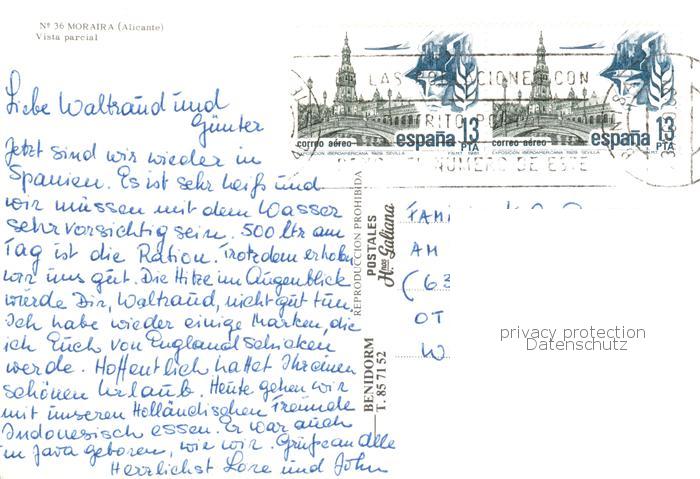 Nº 36 MORAIRA (Alicante)
Vista parcial
Liebe Waltraud und
Günter
Jetzt sind wir wieder in
Spanien. Es ist sehr heiß und
wir müssen mit dem Wasser
sehr vorsichtig sein. 500 ltr am
Tag ist die Ration. Trotzdem erholen
wir uns gut. Die Hitze im Augenblick
würde Dir, Waltraud, nicht gut tun.
Ich habe wieder einige Marken, die
ich Euch von England schicken
werde. Hoffentlich hattet Ihr einen
schönen Urlaub. Heute gehen wir
mit unseren Holländischen Freunde
Indonesisch essen. Er war auch
in Java geboren, wie wir. Grüße an alle
Herzlichst Lore und John
REPRODUCCION PROHIBIDA
POSTALES
Hnos Galiana
BENIDORM
T. 85 71 52
correo aéreo españa 13 PTA
EXPOSICION IBEROAMERICANA 1929. SEVILLA F.N.M.T. 1981
correo aéreo españa 13 PTA
EXPOSICION IBEROAMERICANA 1929. SEVILLA F.N.M.T. 1981
LAS CON
NUMERO DE ESTE
FAM
AM
(63
OT
W
privacy protection
Datenschutz